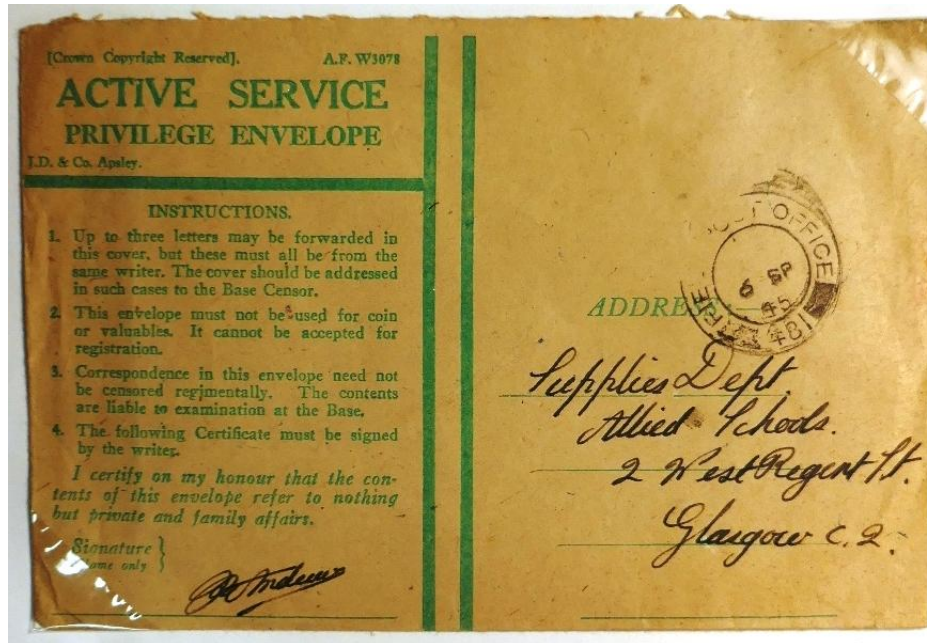 [Crown Copyright Reserved]. A.F. W3078
ACTIVE SERVICE
PRIVILEGE ENVELOPE
J.D. & Co. Apsley.
INSTRUCTIONS.
1. Up to three letters may be forwarded in
this cover, but these must all be from the
same writer. The cover should be addressed
in such cases to the Base Censor.
2. This envelope must not be used for coin
or valuables. It cannot be accepted for
registration.
3. Correspondence in this envelope need not
be censored regimentally. The contents
are liable to examination at the Base.
4. The following Certificate must be signed
by the writer.
I certify on my honour that the con-
tents of this envelope refer to nothing
but private and family affairs.
Signature }
Name only
OFFICE
6 SP
45
481
ADDRESS
Supplies Dept.
Allied Schools.
2 West Regent St.
Glasgow C.2.